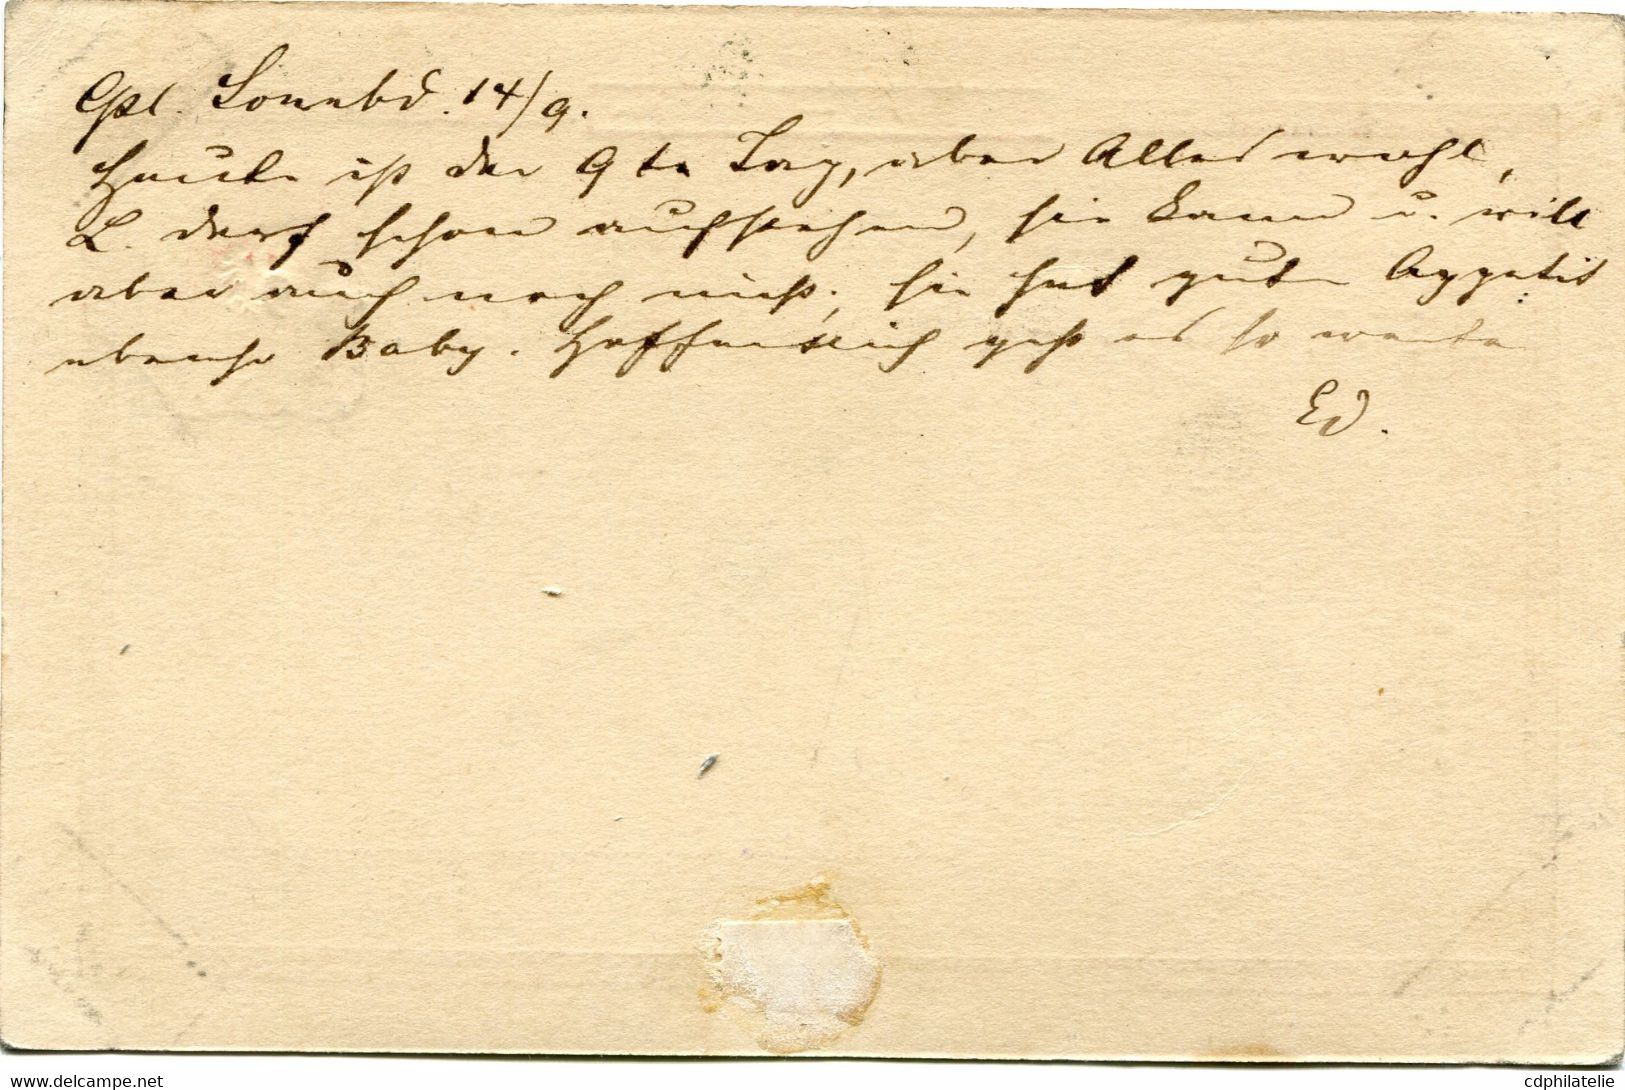 Cpl. Sonnabd. 14/9.
Heute ist der 9te Tag, aber Alles wohl,
L. darf schon aufstehen, sie kann u. will
aber auch noch nicht; sie hat guten Appetit
ebenso Baby. Hoffentlich geht es so weiter
Ed.
cdphilatelie